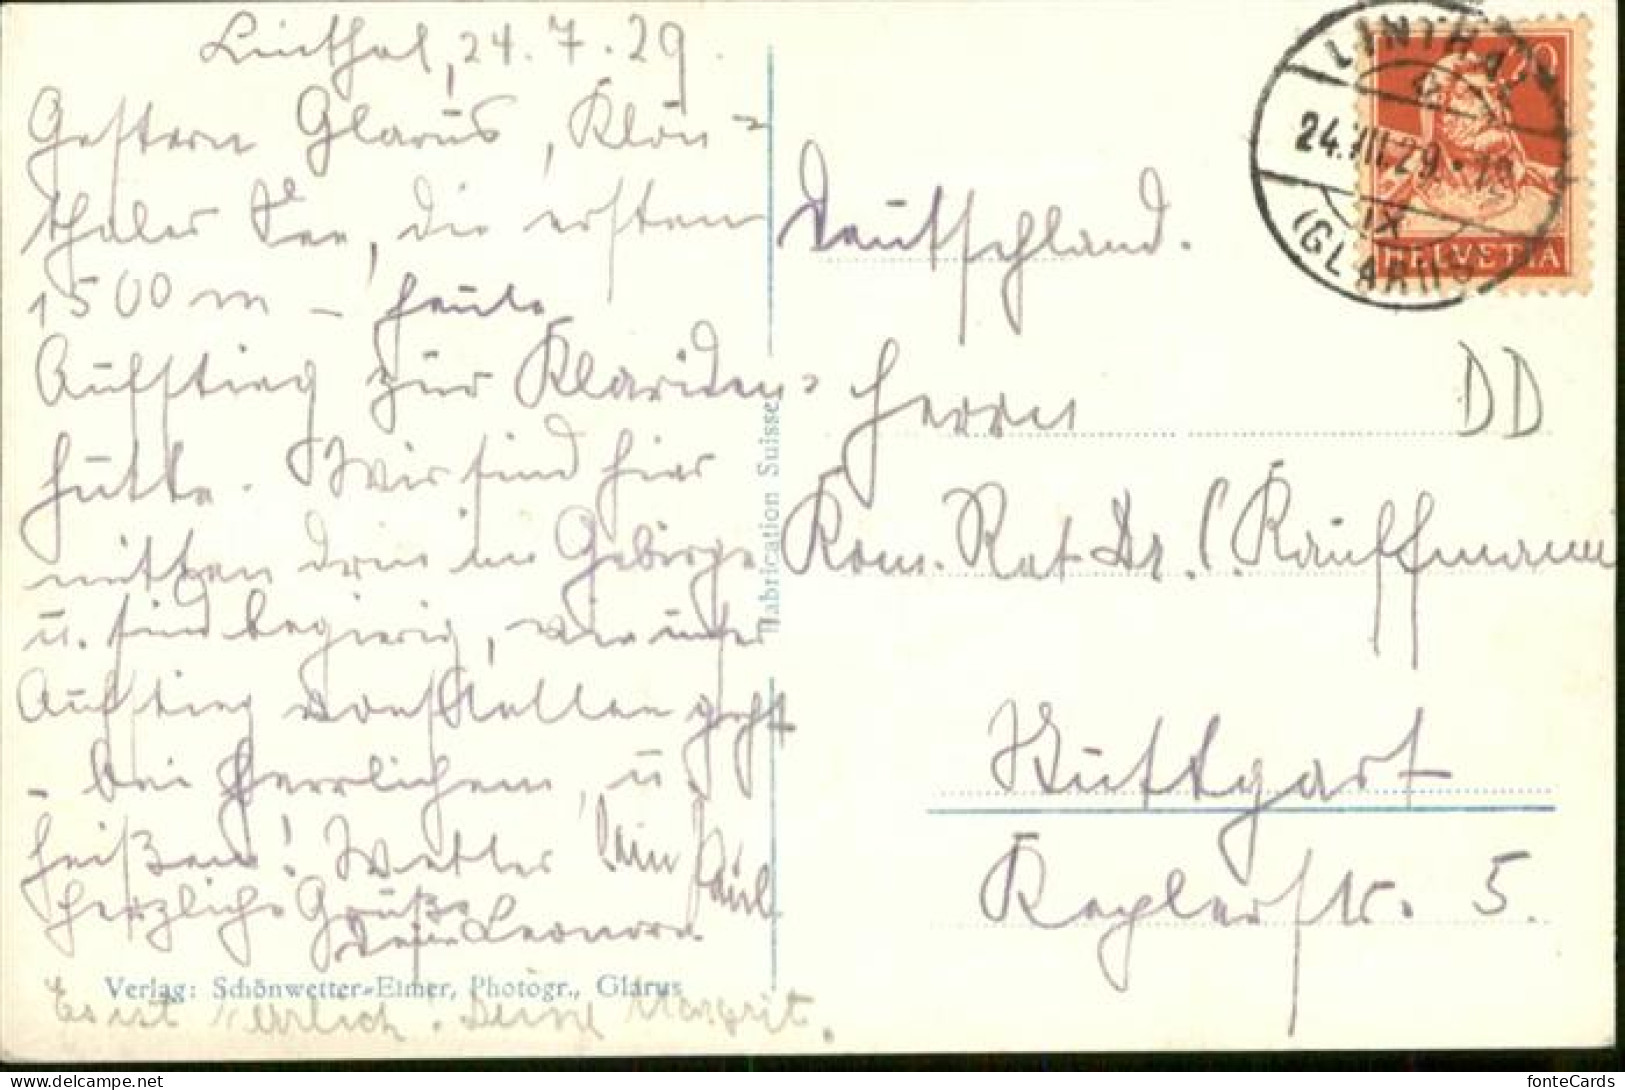 Linthal, 24.7.29.
Gestern Glarus, Klön-
thaler See, die ersten
1500 m - heute
Aufstieg zur Klariden-
hütte. Wir sind hier
mitten drin im Gebirge
u. sind begierig, wie unser
Aufstieg vonstatten geht
- bei herrlichem, u.
heißem! Wetter
Herzliche Grüße
Deine Leonore.
Dein Paul
Es ist herrlich. Deine Margrit.
Verlag: Schönwetter-Elmer, Photogr., Glarus
Fabrication Suisse
LINTHAL
24.VII.29
IX
(GLARUS)
20
HELVETIA
DD
Deutschland.
Herrn
Kom. Rat Dr. C. Kauffmann
Stuttgart
Keplerstr. 5.
fonteCards